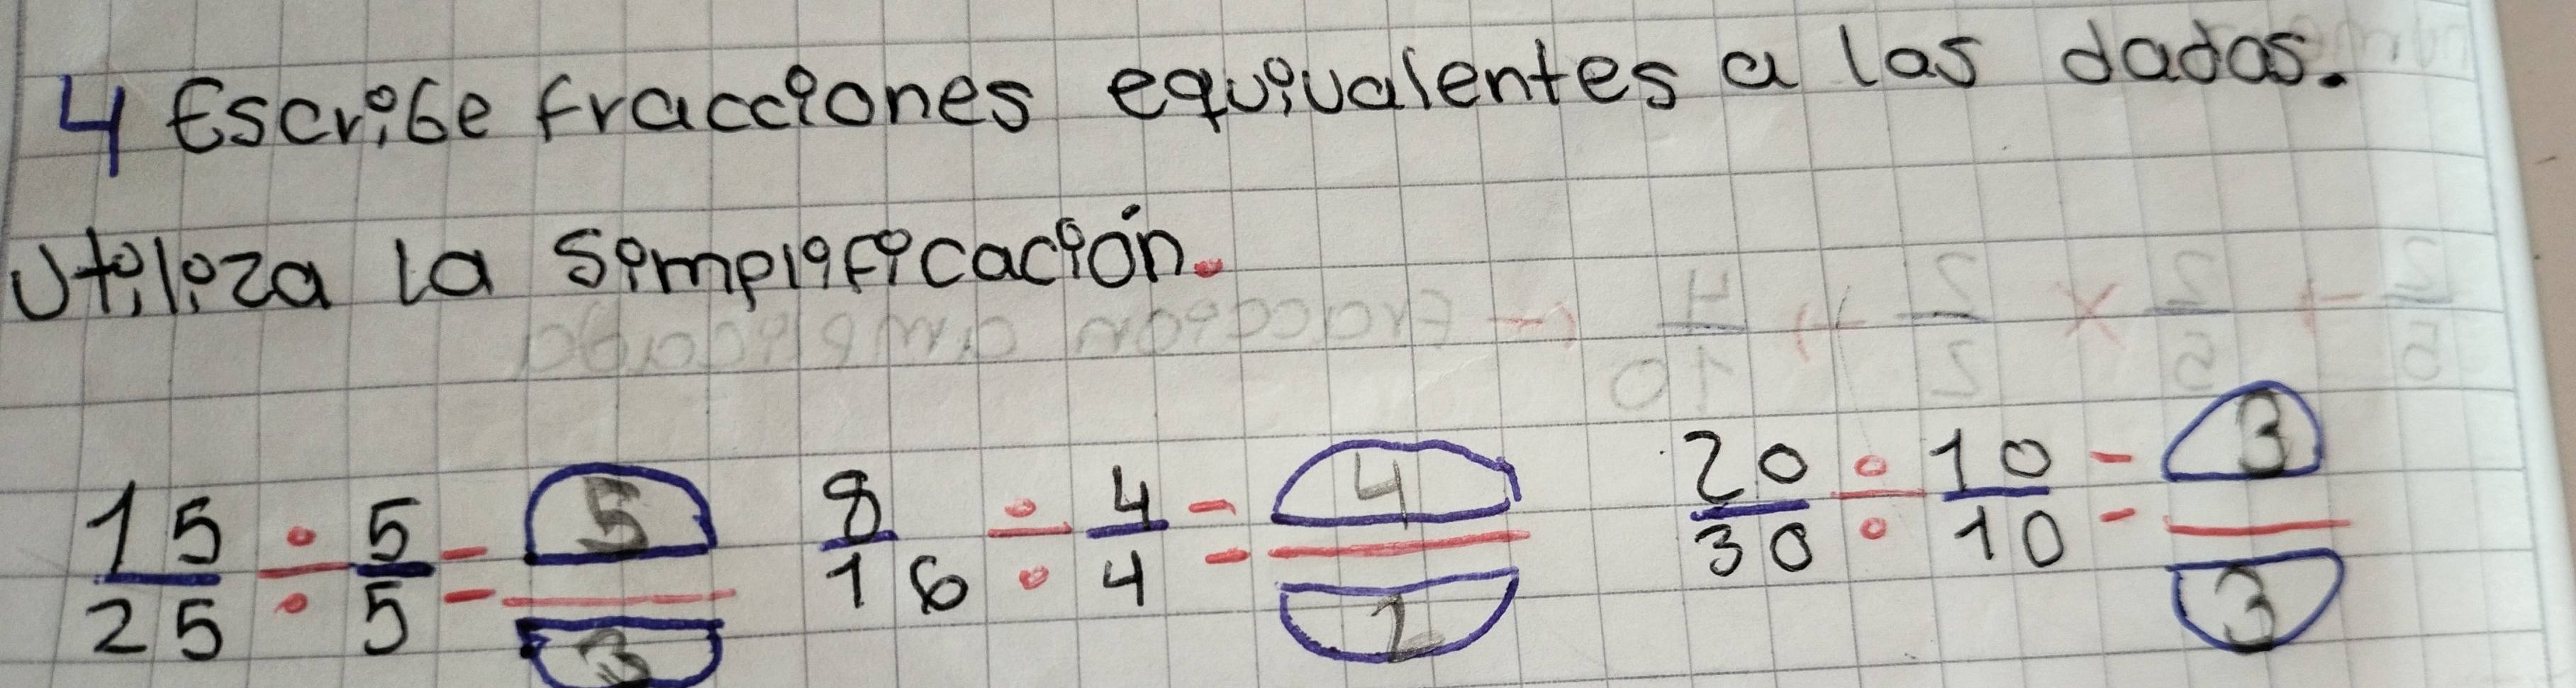 4 Escribe fracciones equivalentes a las dadas.
Utiliza la simplificación.
15/25 ÷ 5/5 = 5/3   8/16 ÷ 4/4 = 4/2   20/30 ÷ 10/10 = 3/3